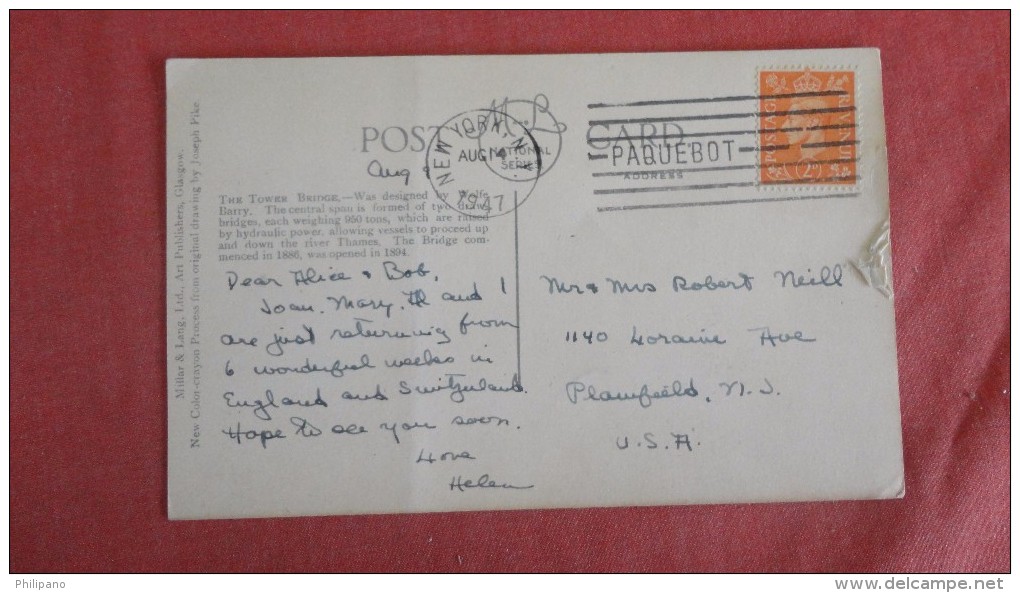 POST CARD
M.L.
NATIONAL
SERIES
NEW YORK, N.Y.
AUG 14
1947
PAQUEBOT
ADDRESS
POSTAGE
REVENUE
2D
Aug
THE TOWER BRIDGE.—Was designed by Wolfe
Barry. The central span is formed of two draw
bridges, each weighing 950 tons, which are raised
by hydraulic power, allowing vessels to proceed up
and down the river Thames. The Bridge com-
menced in 1886, was opened in 1894.
Dear Alice & Bob,
Joan, Mary, and I
are just returning from
6 wonderful weeks in
England and Switzerland.
Hope to see you soon.
Love
Helen
Mr & Mrs Robert Neill
1140 Loraine Ave
Plainfield, N.J.
U.S.A.
Millar & Lang, Ltd., Art Publishers, Glasgow.
New Color-crayon Process from original drawing by Joseph Pike
Philipano
www.delcampe.net